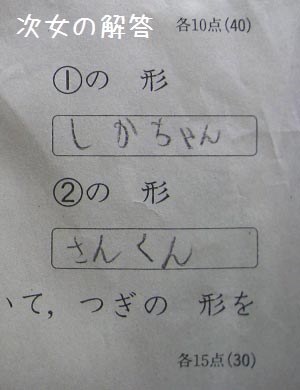 次女の解答
各10点(40)
①の 形
しかちゃん
②の 形
さんくん
いて，つぎの 形を
各15点(30)